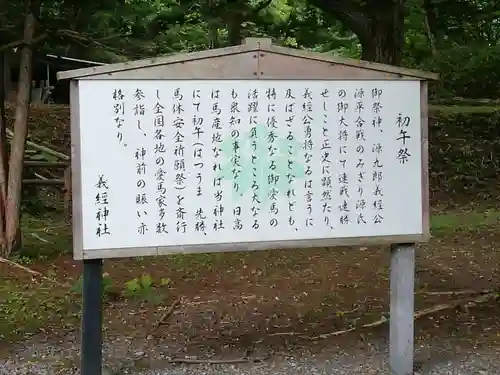 初午祭
御祭神、源九郎義經公
源平合戦のみぎり源氏
の御大将にて連戦連勝
せしこと正史に顕然たり、
義經公勇将なるは言うに
及ばざることなれども、
特に優秀なる御愛馬の
活躍に負うところ大なる
も衆知の事実なり、日高
は馬産地なれば当神社
にて初午(はつうま 先勝
馬休安全祈願祭)を斎行
し全国各地の愛馬家多数
参詣し、神前の賑い亦
格別なり。
義經神社